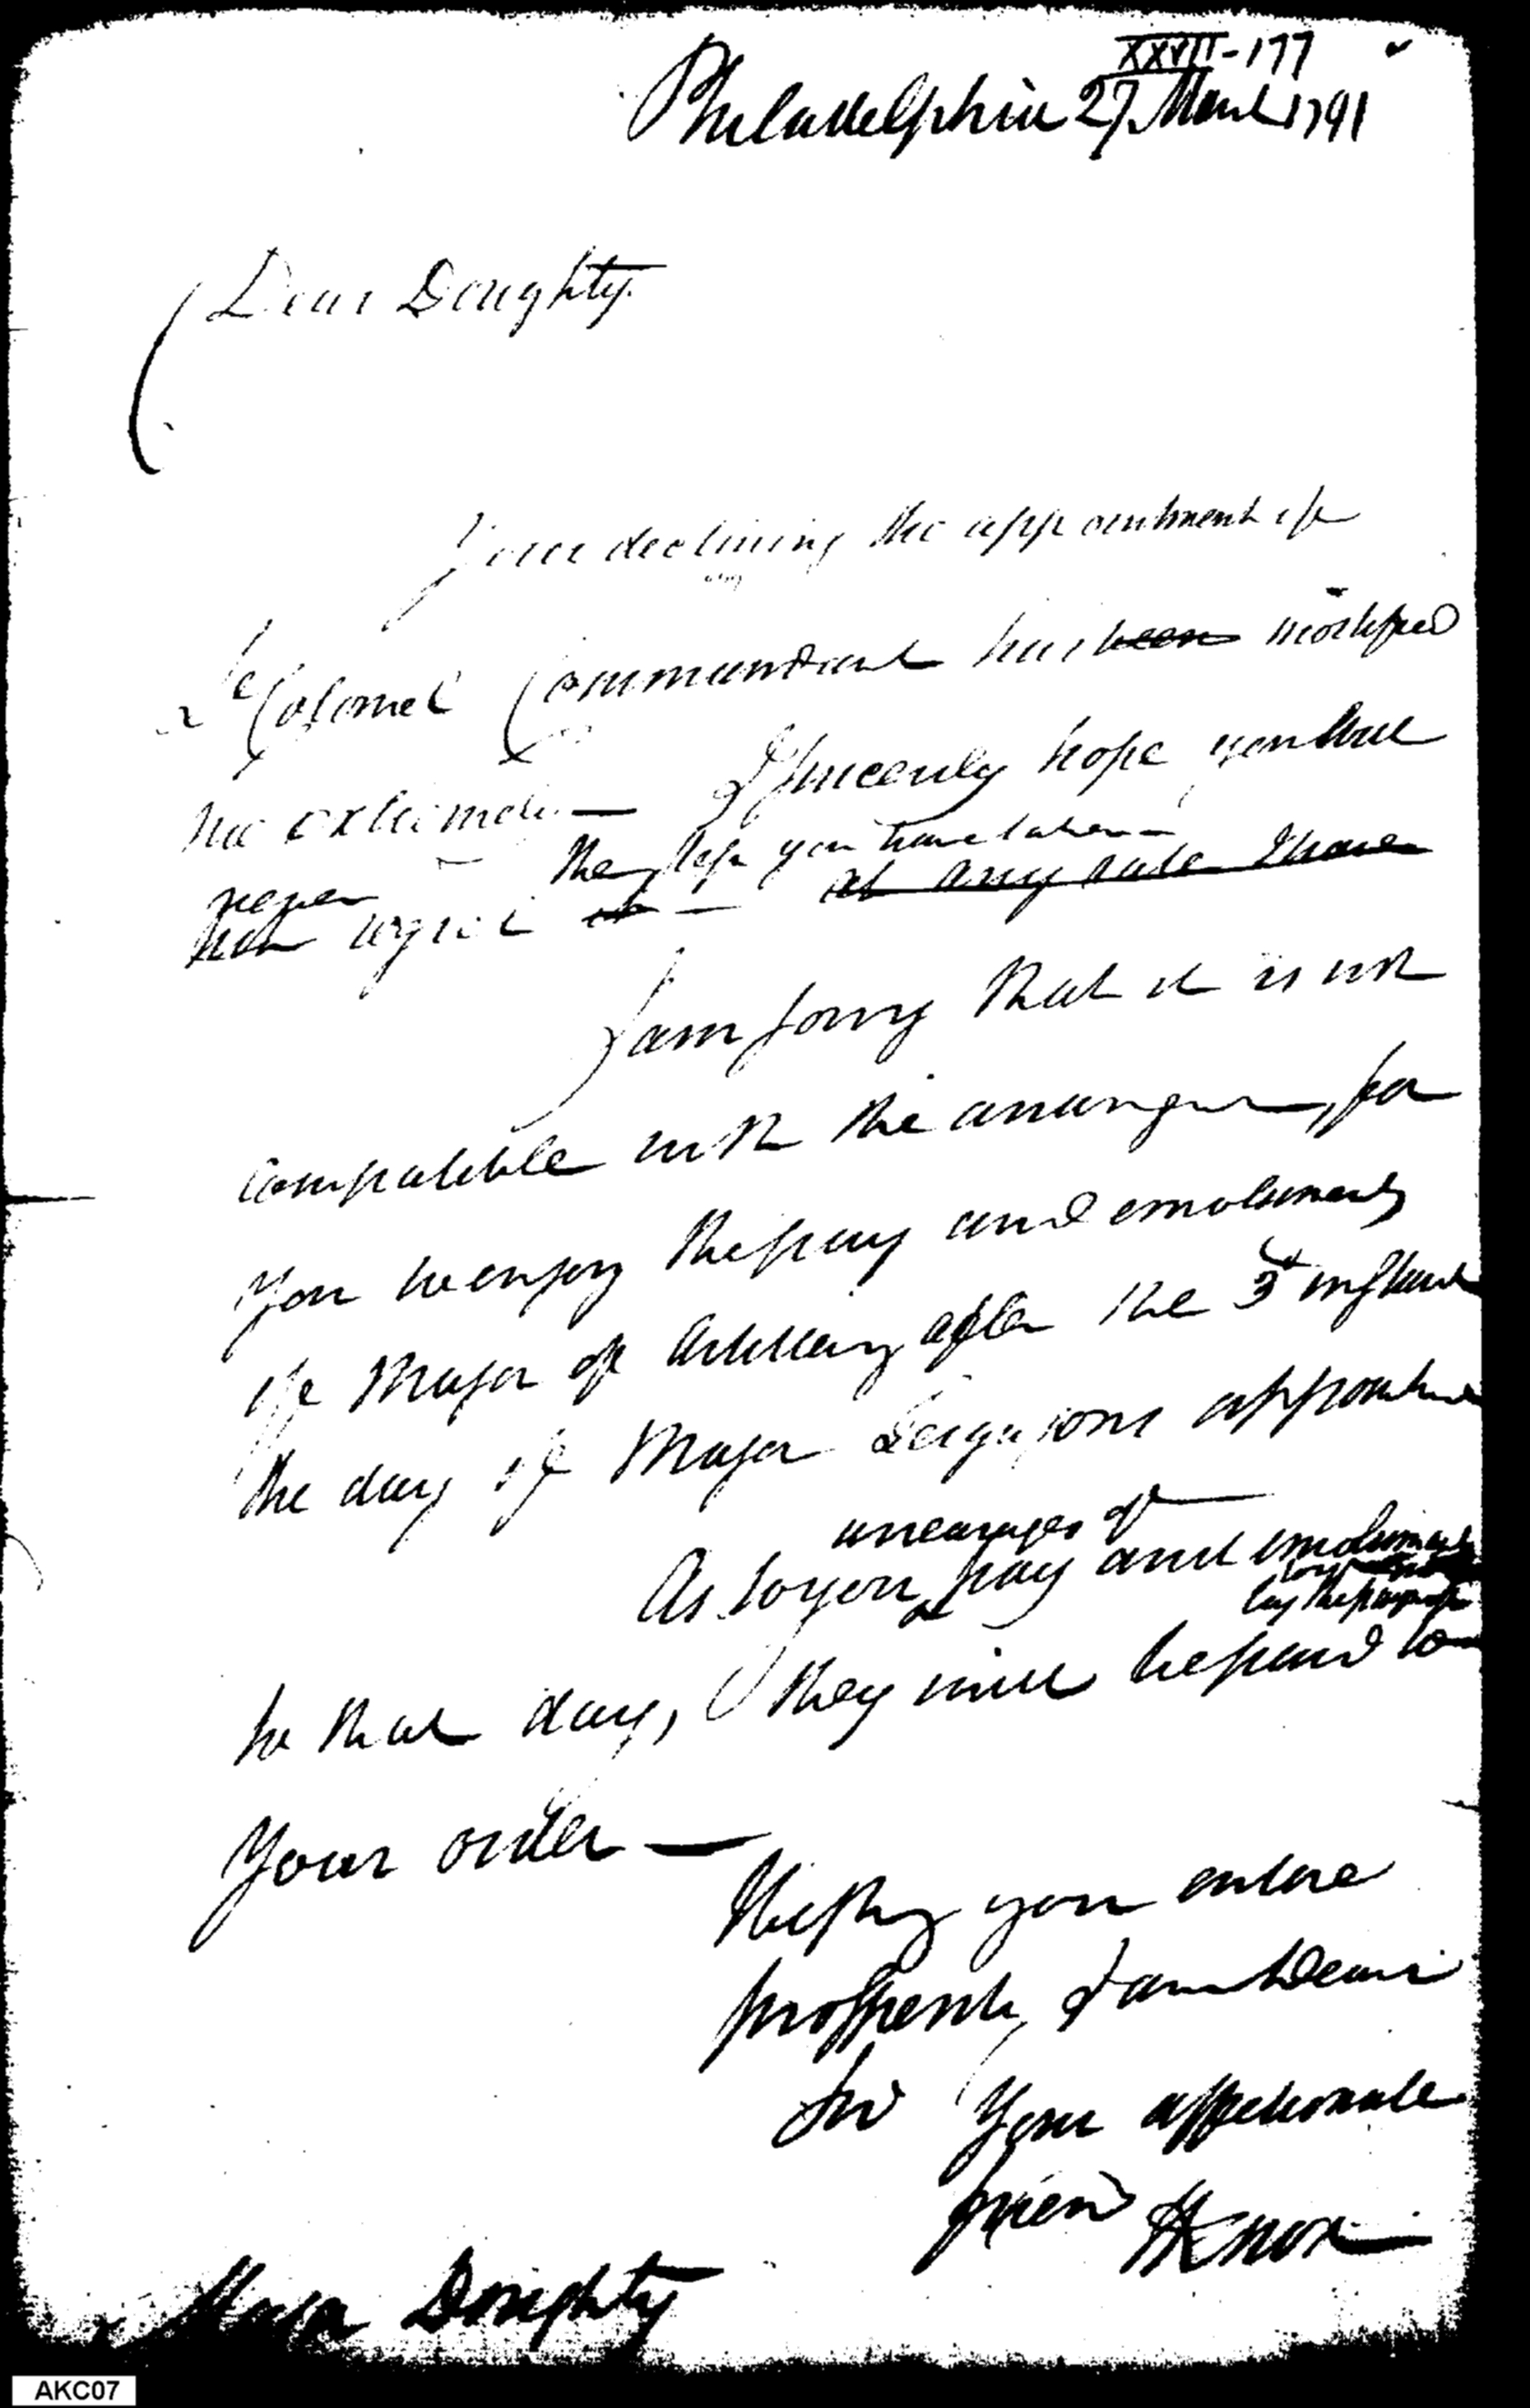 XXVII-177
Philadelphia 27 March 1791
Dear Doughty.
Your declining the appointment of
Colonel Commandant has been mortified
me extremely — I sincerely hope you will
never the step you have taken —
not regret it — at any rate I have
I am sorry that it is not
compatible with the arrangem, for
you to enjoy the pay and emoluments
of a Major of Artillery after the 3d instant
the day of Major Fergusons appointme
arrearages of
As to your pay and emoluments
by the paym
to that day, they will be paid to
Your order —
Wishing you entire
prosperity I am Dear
Sir Your affectionate
friend HKnox
Major Doughty
AKC07